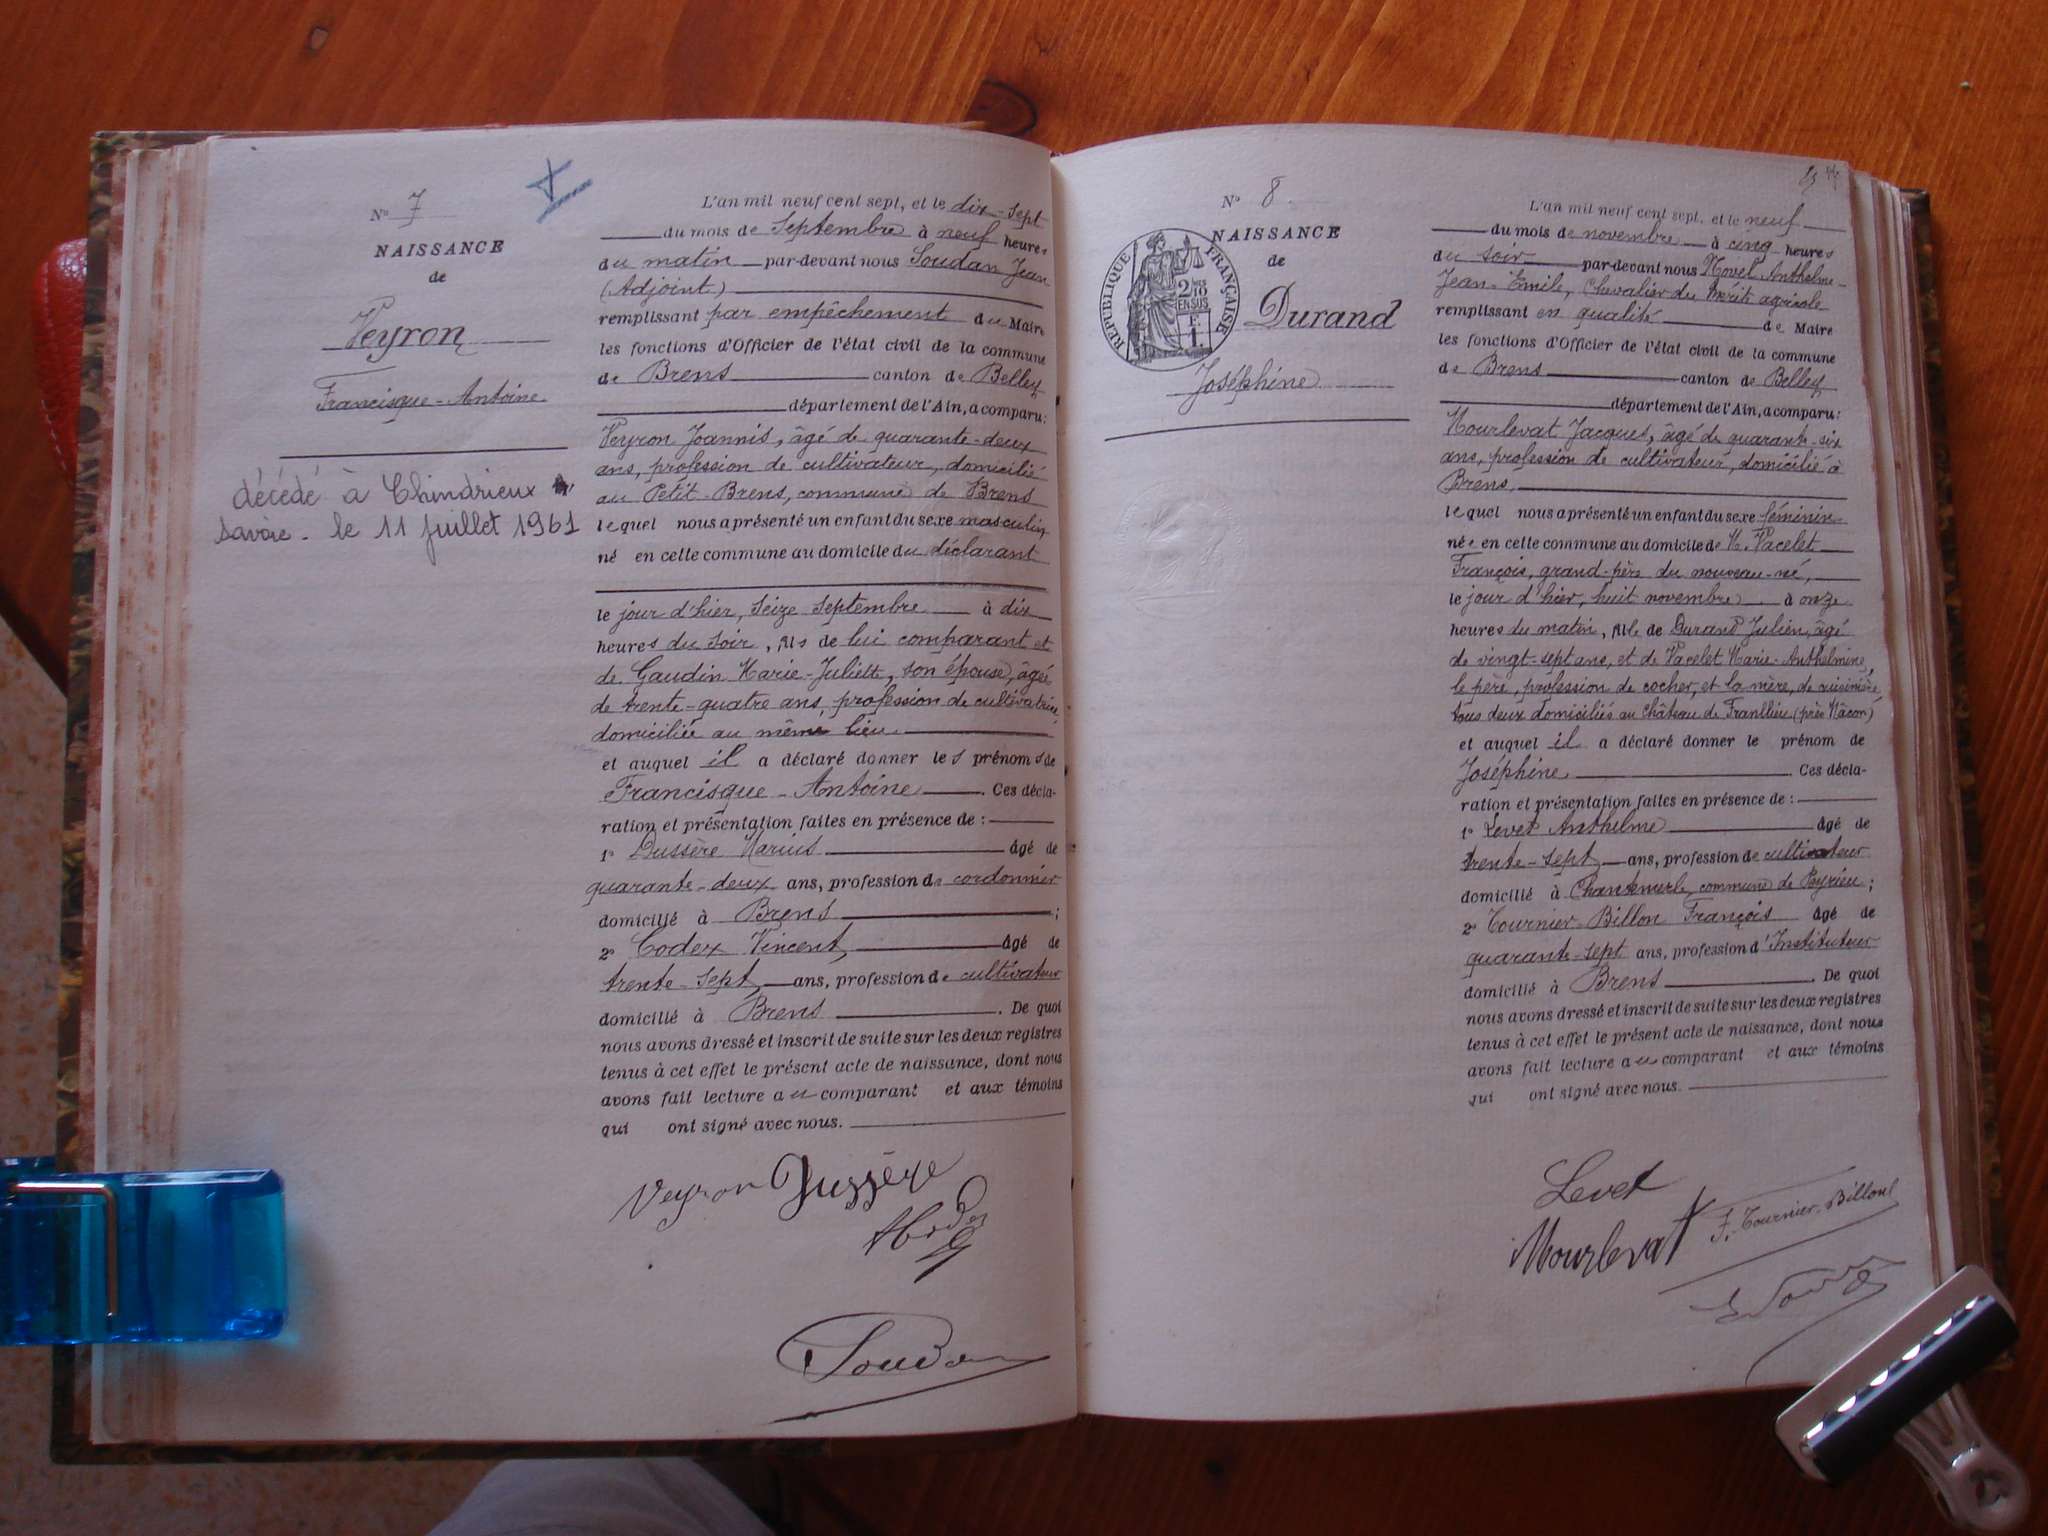 N° 7
NAISSANCE
de
Veyron
Francisque-Antoine
décédé à Chindrieux
Savoie. le 11 juillet 1961
L'an mil neuf cent sept, et le dix-sept
du mois de Septembre à neuf heures
du matin par-devant nous Soudan Jean
(Adjoint)
remplissant par empêchement du Maire
les fonctions d'Officier de l'état civil de la commune
de Brens canton de Belley
département de l'Ain, a comparu:
Veyron Joannis, âgé de quarante-deux
ans, profession de cultivateur, domicilié
au Petit-Brens, commune de Brens
lequel nous a présenté un enfant du sexe masculin
né en cette commune au domicile du déclarant
le jour d'hier, seize septembre à dix
heures du soir, fils de lui comparant et
de Gaudin Marie-Juliette, son épouse, âgée
de trente-quatre ans, profession de cultivatrice,
domiciliée au même lieu.
et auquel il a déclaré donner les prénoms de
Francisque-Antoine. Ces décla-
ration et présentation faites en présence de :
1° Dussère Marius âgé de
quarante-deux ans, profession de cordonnier
domicilié à Brens ;
2° Codex Vincent, âgé de
trente-sept ans, profession de cultivateur
domicilié à Brens. De quoi
nous avons dressé et inscrit de suite sur les deux registres
tenus à cet effet le présent acte de naissance, dont nous
avons fait lecture au comparant et aux témoins
qui ont signé avec nous.
Veyron Dussère
Soudan
N° 8
NAISSANCE
de
RÉPUBLIQUE FRANÇAISE
2 10
EN SUS
Durand
Joséphine
L'an mil neuf cent sept, et le neuf
du mois de novembre à cinq heures
du soir par-devant nous Novel Anthelme-
Jean-Emile, Chevalier du Mérite agricole
remplissant en qualité de Maire
les fonctions d'Officier de l'état civil de la commune
de Brens canton de Belley
département de l'Ain, a comparu:
Mourlevat Jacques, âgé de quarante-six
ans, profession de cultivateur, domicilié à
Brens,
lequel nous a présenté un enfant du sexe féminin
née en cette commune au domicile de M. Vacelet
François, grand-père du nouveau-né,
le jour d'hier, huit novembre à onze
heures du matin, fille de Durand Julien, âgé
de vingt-sept ans, et de Vacelet Marie-Anthelmine,
le père, profession de cocher, et la mère, de cuisinière,
tous deux domiciliés au Château de (près Mâcon)
et auquel il a déclaré donner le prénom de
Joséphine. Ces décla-
ration et présentation faites en présence de :
1° Levet Anthelme âgé de
trente-sept ans, profession de cultivateur
domicilié à Chantemerle, commune de Peyrieu ;
2° Tournier-Billon François âgé de
quarante-sept ans, profession d'Instituteur
domicilié à Brens. De quoi
nous avons dressé et inscrit de suite sur les deux registres
tenus à cet effet le présent acte de naissance, dont nous
avons fait lecture au comparant et aux témoins
qui ont signé avec nous.
Levet
Mourlevat F. Tournier-Billon